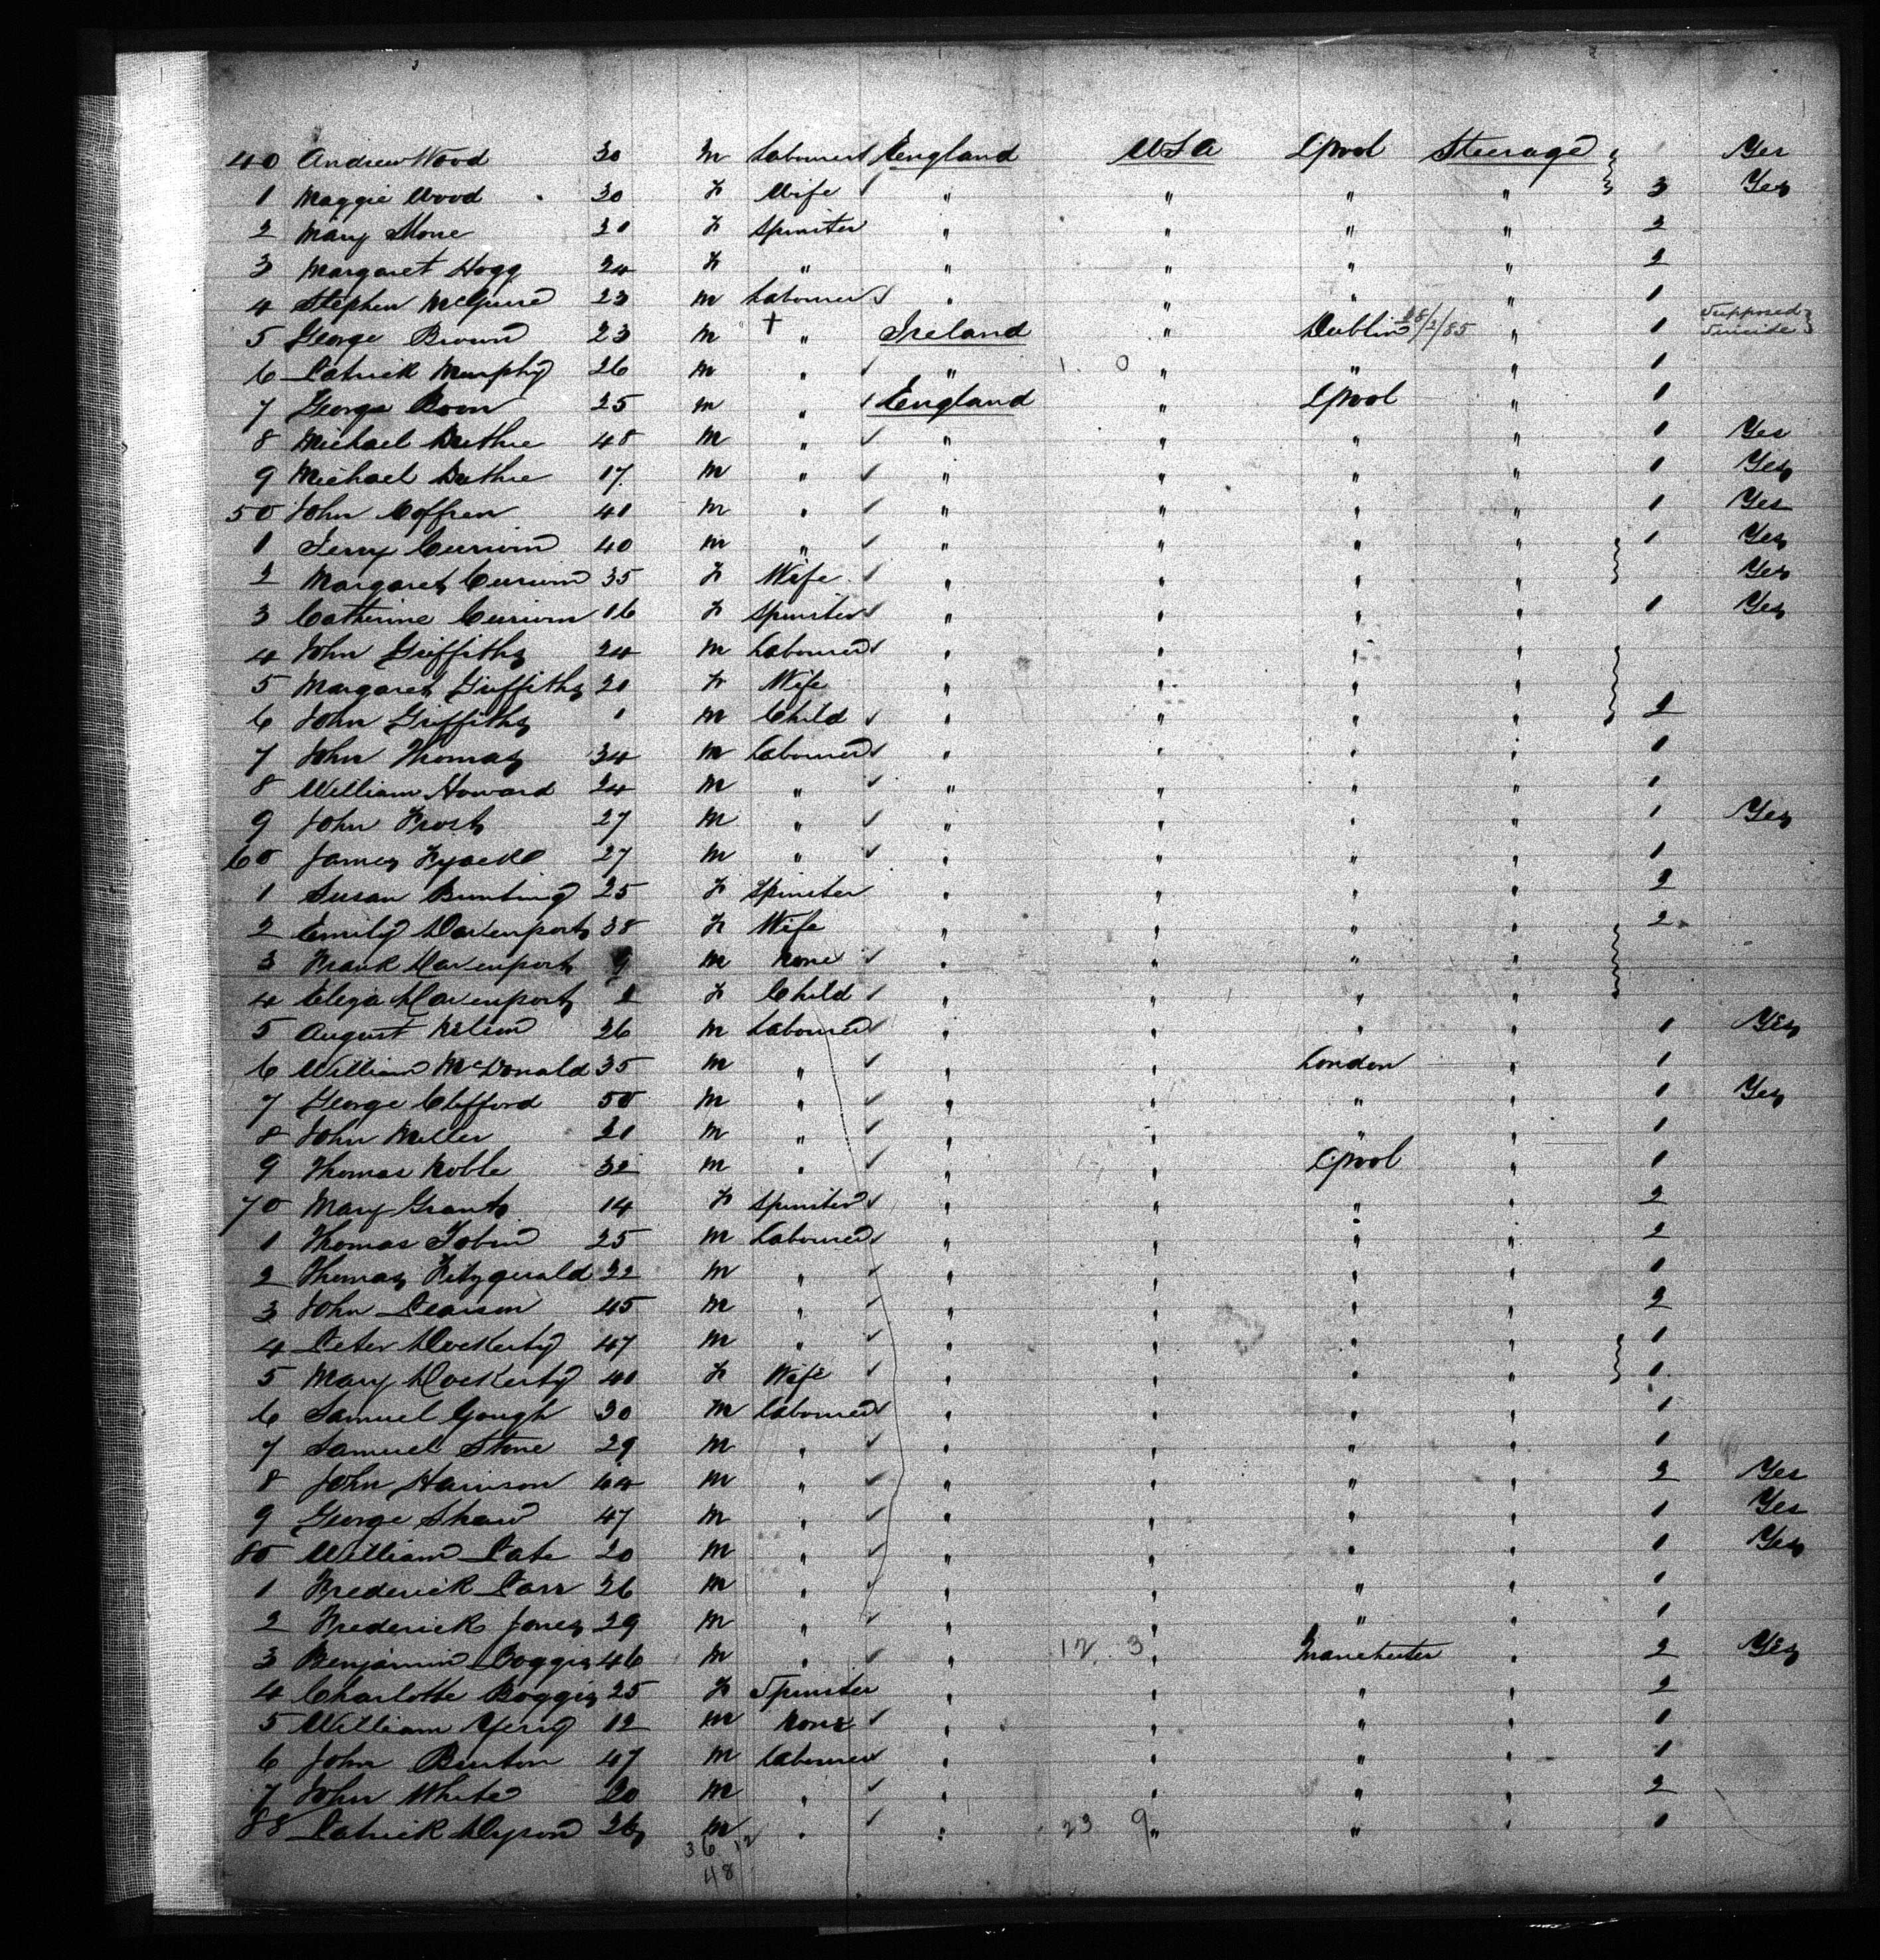 40 Andrew Wood 30 M Labourer England USA L'pool Steerage Yes
1 Maggie Wood 30 F Wife " " " " 3 Yes
2 Mary Stone 20 F Spinster " " " " 2
3 Margaret Hogg 24 F " " " " " 2
4 Stephen McGuire 23 M Labourer " " " " 1
5 George Brown 23 M " Ireland " Dublin 28/2/85 " 1 Supposed Suicide
6 Patrick Murphy 26 M " " 1. 0 " " " 1
7 George Boon 25 M " England " L'pool " 1
8 Michael Duthie 48 M " " " " " 1 Yes
9 Michael Duthie 17 M " " " " " 1 Yes
50 John Coffren 40 M " " " " " 1 Yes
1 Jerry 40 M " " " " " 1 Yes
2 Margaret 35 F Wife " " " " Yes
3 Catherine 16 F Spinster " " " " 1 Yes
4 John Griffiths 24 M Labourer " " " "
5 Margaret Griffiths 20 F Wife " " " "
6 John Griffiths 1 M Child " " " " 2
7 John Thomas 34 M Labourer " " " " 1
8 William Howard 24 M " " " " " 1
9 John Frost 27 M " " " " " 1 Yes
60 James 27 M " " " " " 1
1 Susan Bunting 25 F Spinster " " " " 2
2 Emily Davenport 38 F Wife " " " " 2
3 Frank Davenport 9 M None " " " "
4 Eliza Davenport F Child " " " "
5 August 26 M Labourer " " " " 1 Yes
6 William McDonald 35 M " " " London " 1
7 George Clifford 50 M " " " " " 1 Yes
8 John Miller 21 M " " " " " 1
9 Thomas Noble 32 M " " " L'pool " 1
70 Mary Grant 14 F Spinster " " " " 2
1 Thomas Tobin 25 M Labourer " " " " 2
2 Thomas Fitzgerald 22 M " " " " " 1
3 John Pearson 45 M " " " " " 2
4 Peter Dockerty 47 M " " " " " 1
5 Mary Dockerty 40 F Wife " " " " 1
6 Samuel Gough 30 M Labourer " " " " 1
7 Samuel Stone 29 M " " " " " 1
8 John Harrison 44 M " " " " " 2 Yes
9 George Shaw 47 M " " " " " 1 Yes
80 William Pate 20 M " " " " " 1 Yes
1 Frederick 26 M " " " " " 1
2 Frederick Jones 29 M " " " " " 1
3 Benjamin Boggis 46 M " " 12 3 " Manchester " 2 Yes
4 Charlotte Boggis 25 F Spinster " " " " 2
5 William 12 M None " " " " 1
6 John Burton 47 M Labourer " " " " 1
7 John White 20 M " " " " " 2
88 Patrick Dyson 26 M " " 23 9 " " " 1
36 12
48